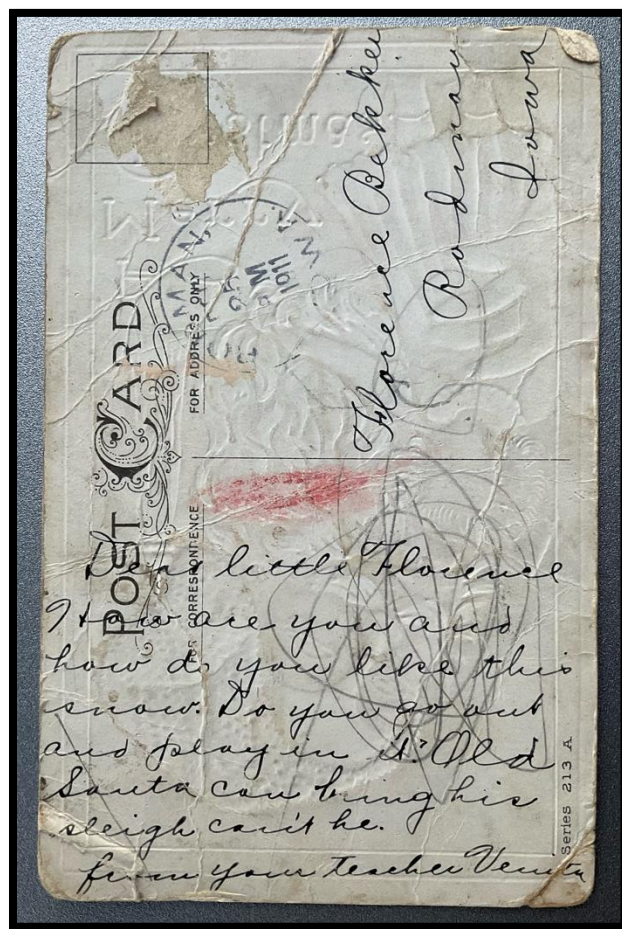 POST CARD
FOR ADDRESS ONLY
FOR CORRESPONDENCE
Florence Bekker
Rodman
Iowa
Dear little Florence
How are you and
how do you like this
snow. Do you go out
and play in it? Old
Santa can bring his
sleigh can't he.
from your teacher
Series 213 A
Merry